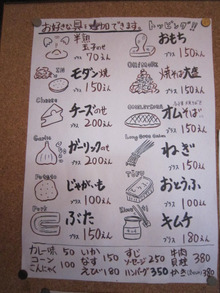 お好きな具も追加できます。トッピング!!
半目
玉子のせ
プラス 70えん
おもち
プラス 150えん
モダン焼
プラス 150えん
焼そば大盛
プラス 150えん
Cheese
チーズのせ
プラス 200えん
オムそば
プラス 150えん
Garlic
ガーリックのせ
プラス 200えん
ねぎ
プラス 150えん
Potato
じゃがいも
プラス 100えん
おとうふ
プラス 100えん
Pork
ぶた
プラス 150えん
キムチ
プラス 180えん
カレー味 50 いか すじ 牛肉
コーン 100 なす 150 ソーセージ 250 貝柱 380
こんにゃく えび 180 ハンバーグ 350 かき